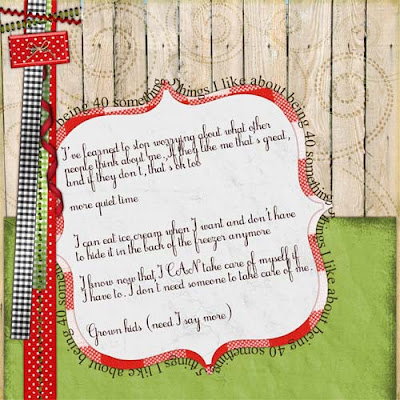 being 40 something Things I like about being 40 something Things I like about being 40 something Things I like about being 40 something
I've learned to stop worrying about what other
people think about me. If they like me that's great,
and if they don't, that's ok too
more quiet time
I can eat ice cream when I want and don't have
to hide it in the back of the freezer anymore
I know now that I CAN take care of myself if
I have to. I don't need someone to take care of me.
Grown kids (need I say more)